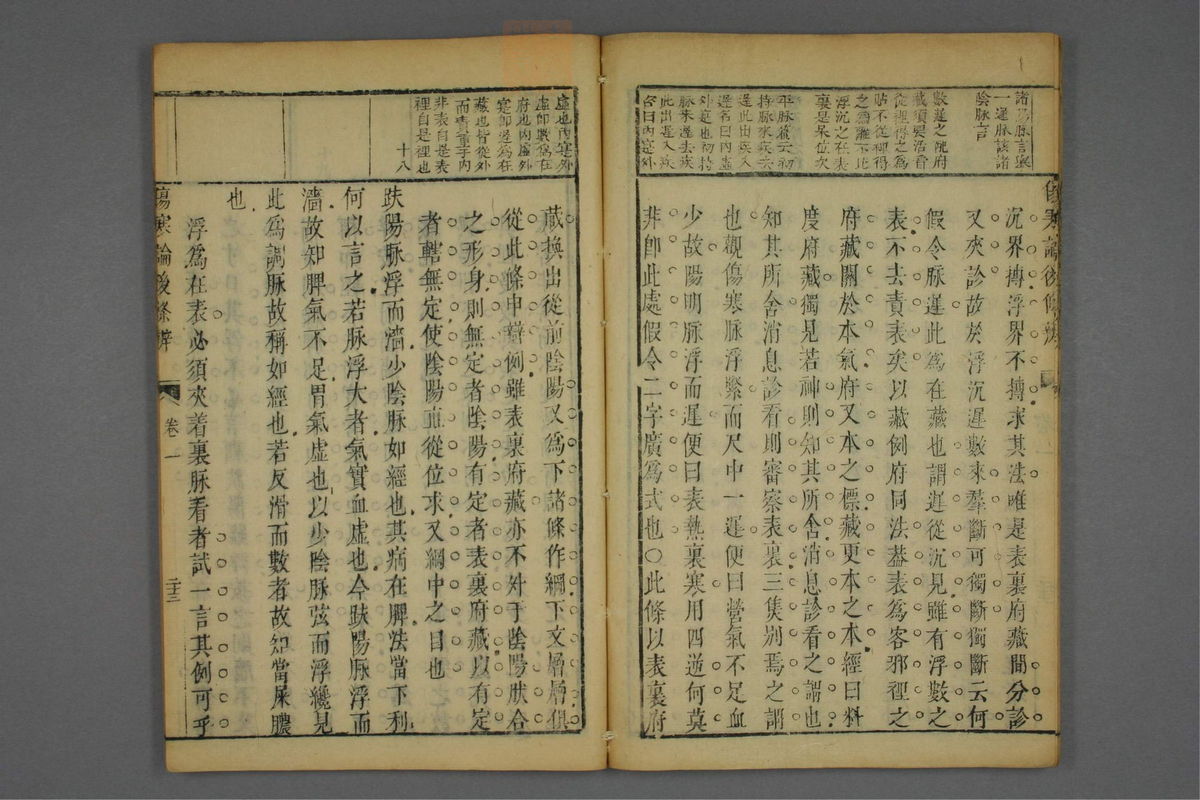 諸𢎞脉言寒
一遲脉該諸
陰脉言
數遲之隨府
藏須要活看
從裡得之爲
貼不從裡得
之爲離下此
浮沉之在表
裏是呆位次
平脉篇云初
持脉來疾去
遲此出疾入
遲名曰內虛
外實也初持
脉來遲去疾
此出遲入疾
名曰內實外
傷寒論後條辨
沉界摶浮界不摶求其法唯是表裏府藏間分診
又夾診故於浮沉遲數來羣斷可獨斷獨斷云何
假令脉遲此爲在藏也謂遲從沉見雖有浮數之
表不去責表矣以藏例府同法葢表爲客邪裡之
府藏關於本氣府又本之標藏更本之本經曰料
度府藏獨見若神則知其所舍消息診看之謂也
知其所舍消息診看則審察表裏三隻別焉之謂
也觀傷寒脉浮緊而尺中一遲便曰營氣不足血
少故陽明脉浮而遲便曰表熱裏寒用四逆何莫
非卽此處假令二字廣爲式也○此條以表裏府
虛也內實外
虛卽數爲在
府也內虛外
實卽遲爲在
藏也皆從外
而責重乎內
非表自是表
裡自是裡也
十八
藏換出從前陰陽又爲下諸條作綱下文層層俱
從此條申辯例雖表裏府藏亦不外于陰陽肰合
之形身則無定者陰陽有定者表裏府藏以有定
者轄無定使陰陽並從位求又綱中之目也
趺陽脉浮而濇少陰脉如經也其病在脾法當下利
何以言之若脉浮大者氣實血虛也今趺陽脉浮而
濇故知脾氣不足胃氣虛也以少陰脉弦而浮纔見
此爲調脉故稱如經也若反滑而數者故知當屎膿
也
浮爲在表必須夾着裏脉看者試一言其例可乎
傷寒論後條辨
卷一
二十三